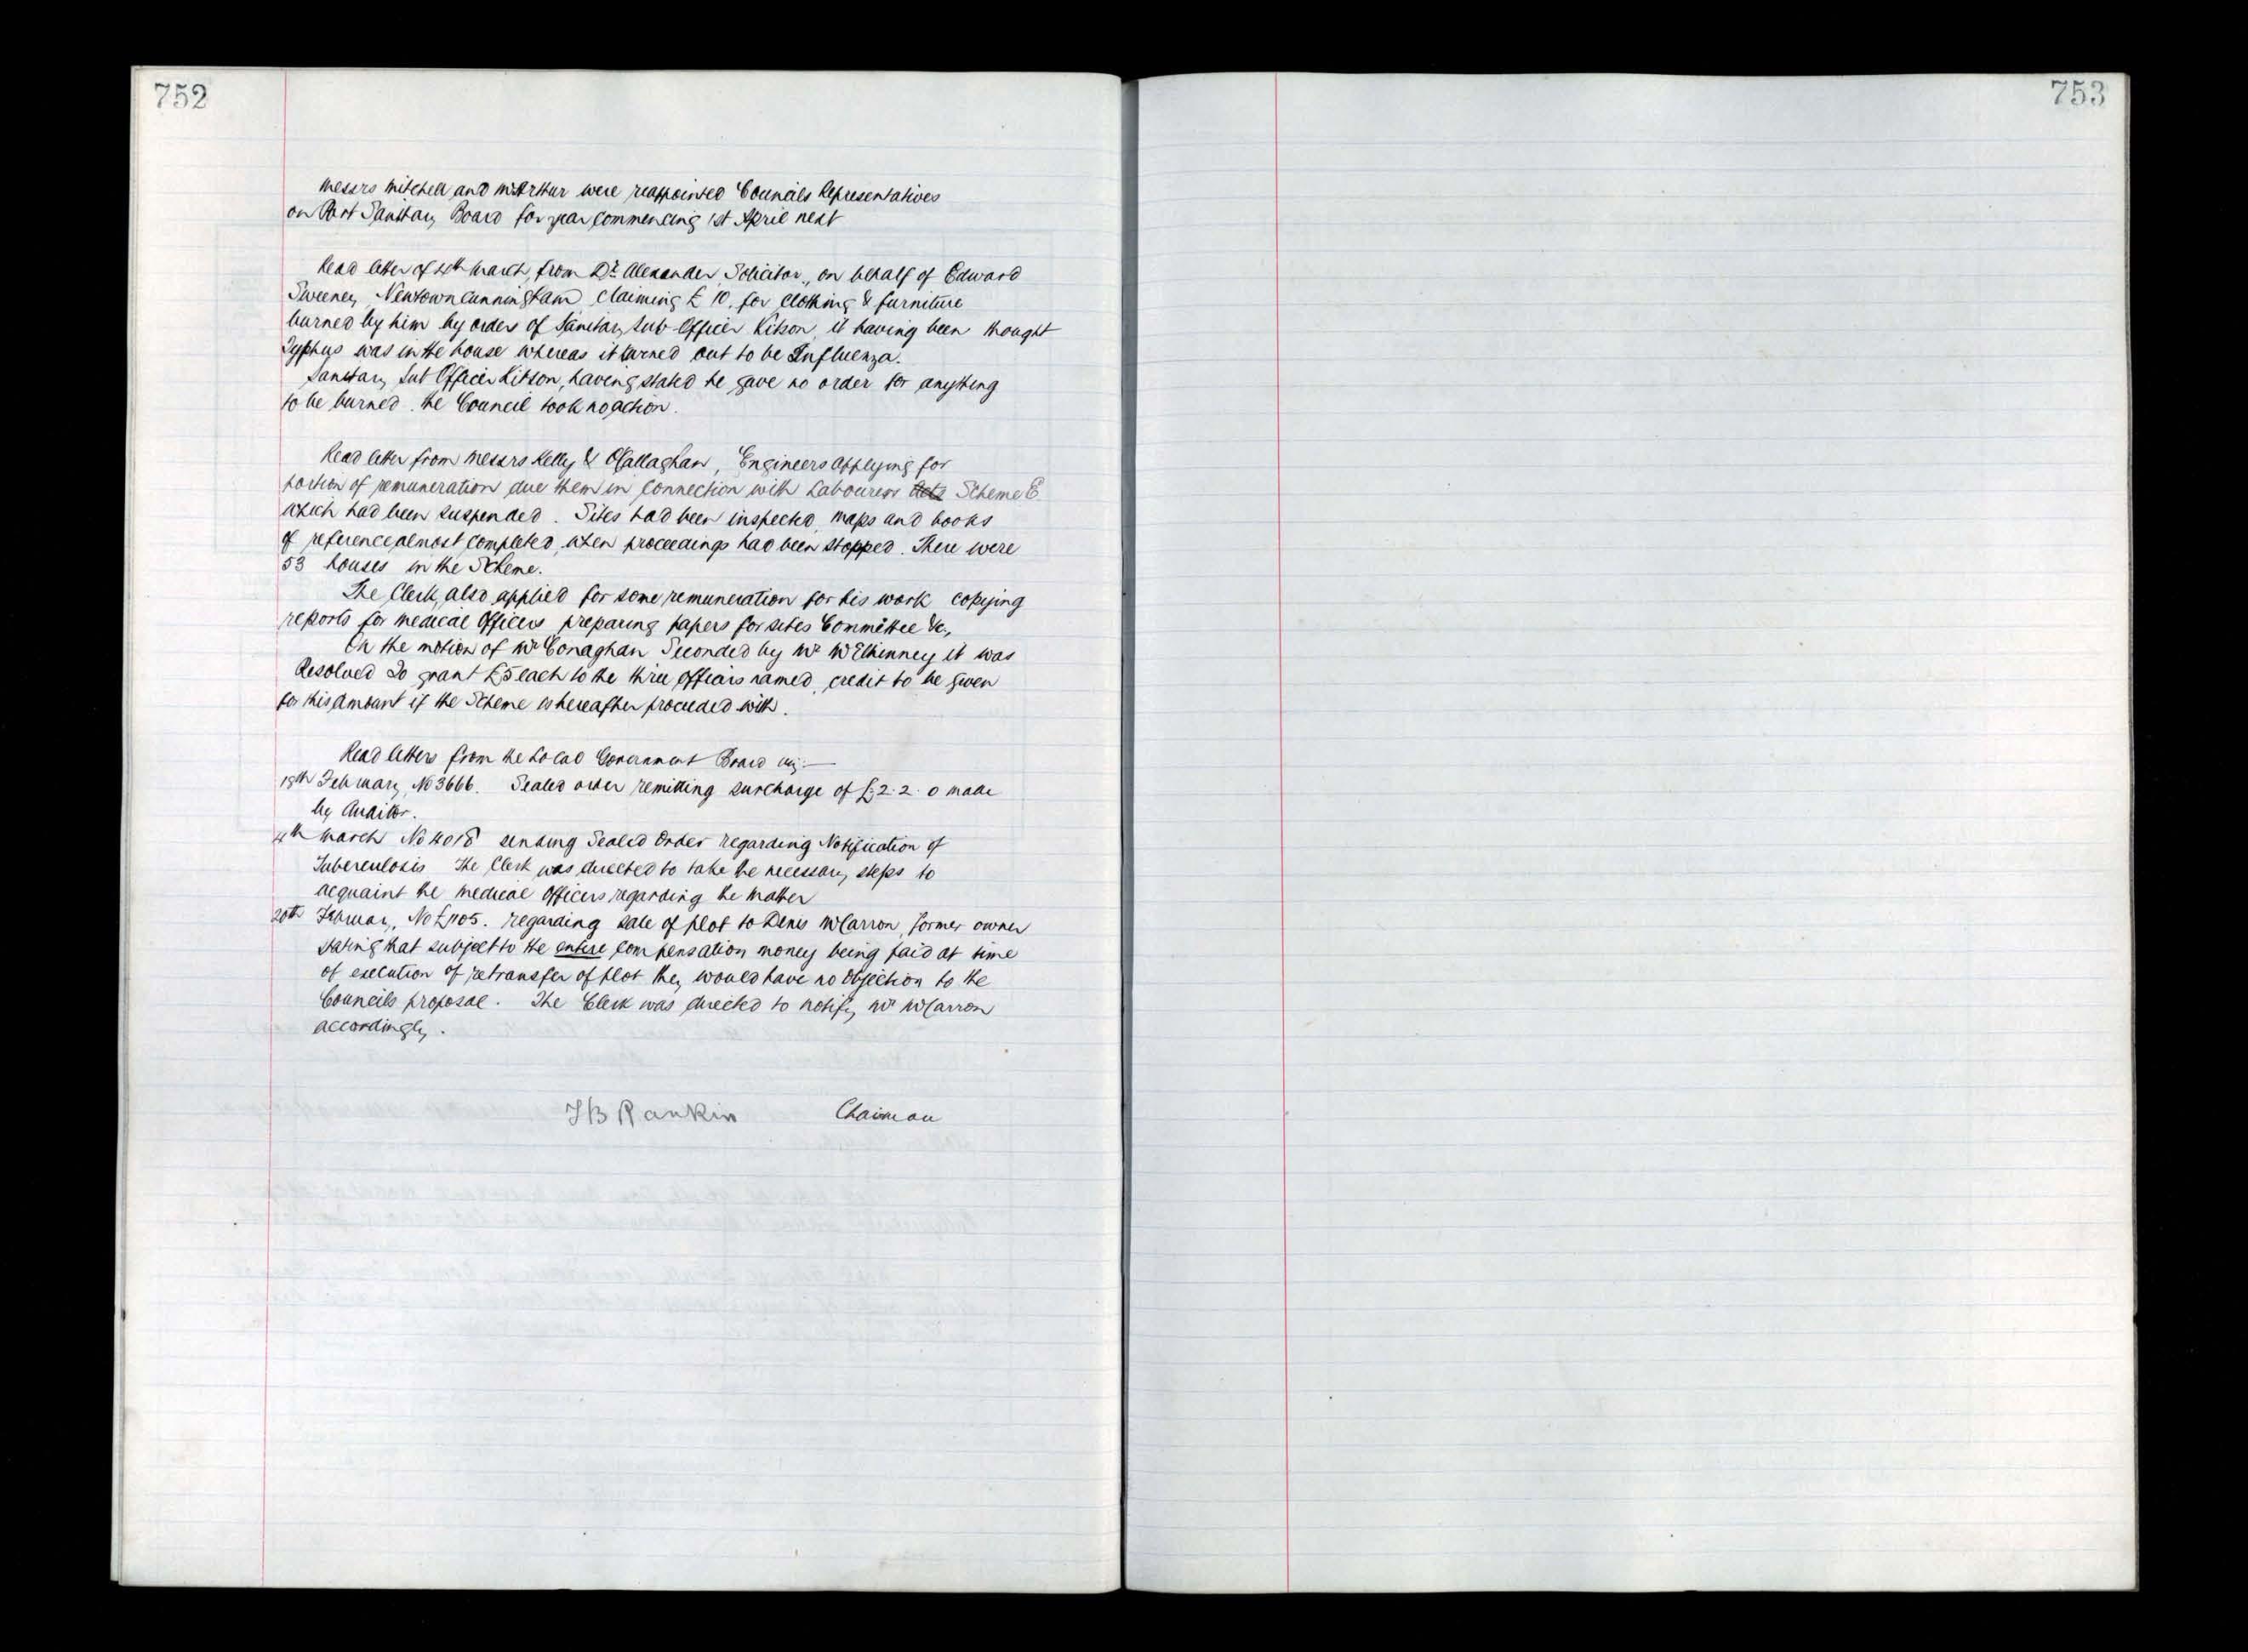 752
Messrs Mitchell and McArthur were reappointed Councils Representatives
on Port Sanitary Board for year commencing 1st April next
Read letter of 4th March, from Dr. Alexander, Solicitor, on behalf of Edward
Sweeney, Newtowncunningham claiming £10. for Clothing & furniture
burned by him by orders of Sanitary Sub-Officer Kitson, it having been thought
Typhus was in the house whereas it turned out to be Influenza.
Sanitary Sub Officer Kitson, having stated he gave no order for anything
to be burned. the Council took no action.
Read letter from Messrs Kelly & O'Callaghan, Engineers applying for
portion of remuneration due them in connection with Labourers Acts Scheme E
which had been suspended. Sites had been inspected, maps and books
of reference almost completed, when proceedings had been stopped. There were
53 houses in the Scheme.
The Clerk, also applied for some remuneration for his work copying
reports for Medical Officers preparing papers for sites Committee &c.,
On the motion of Mr Conaghan Seconded by Mr McElhinney it was
Resolved To grant £5 each to the three officers named, credit to be given
for this amount if the Scheme is hereafter proceeded with.
Read letters from the Local Government Board viz:—
18th February, No 3666. Sealed order remitting surcharge of £2.2.0 made
by Auditor.
4th March No 4018 sending Sealed Order regarding Notification of
Tuberculosis The Clerk was directed to take the necessary steps to
acquaint the Medical Officers regarding the matter
20th February, No regarding sale of plot to Denis McCarron, former owner
stating that subject to the entire compensation money being paid at time
of execution of retransfer of plot they would have no objection to the
Councils proposal. The Clerk was directed to notify Mr McCarron
accordingly.
JB Rankin Chairman
753